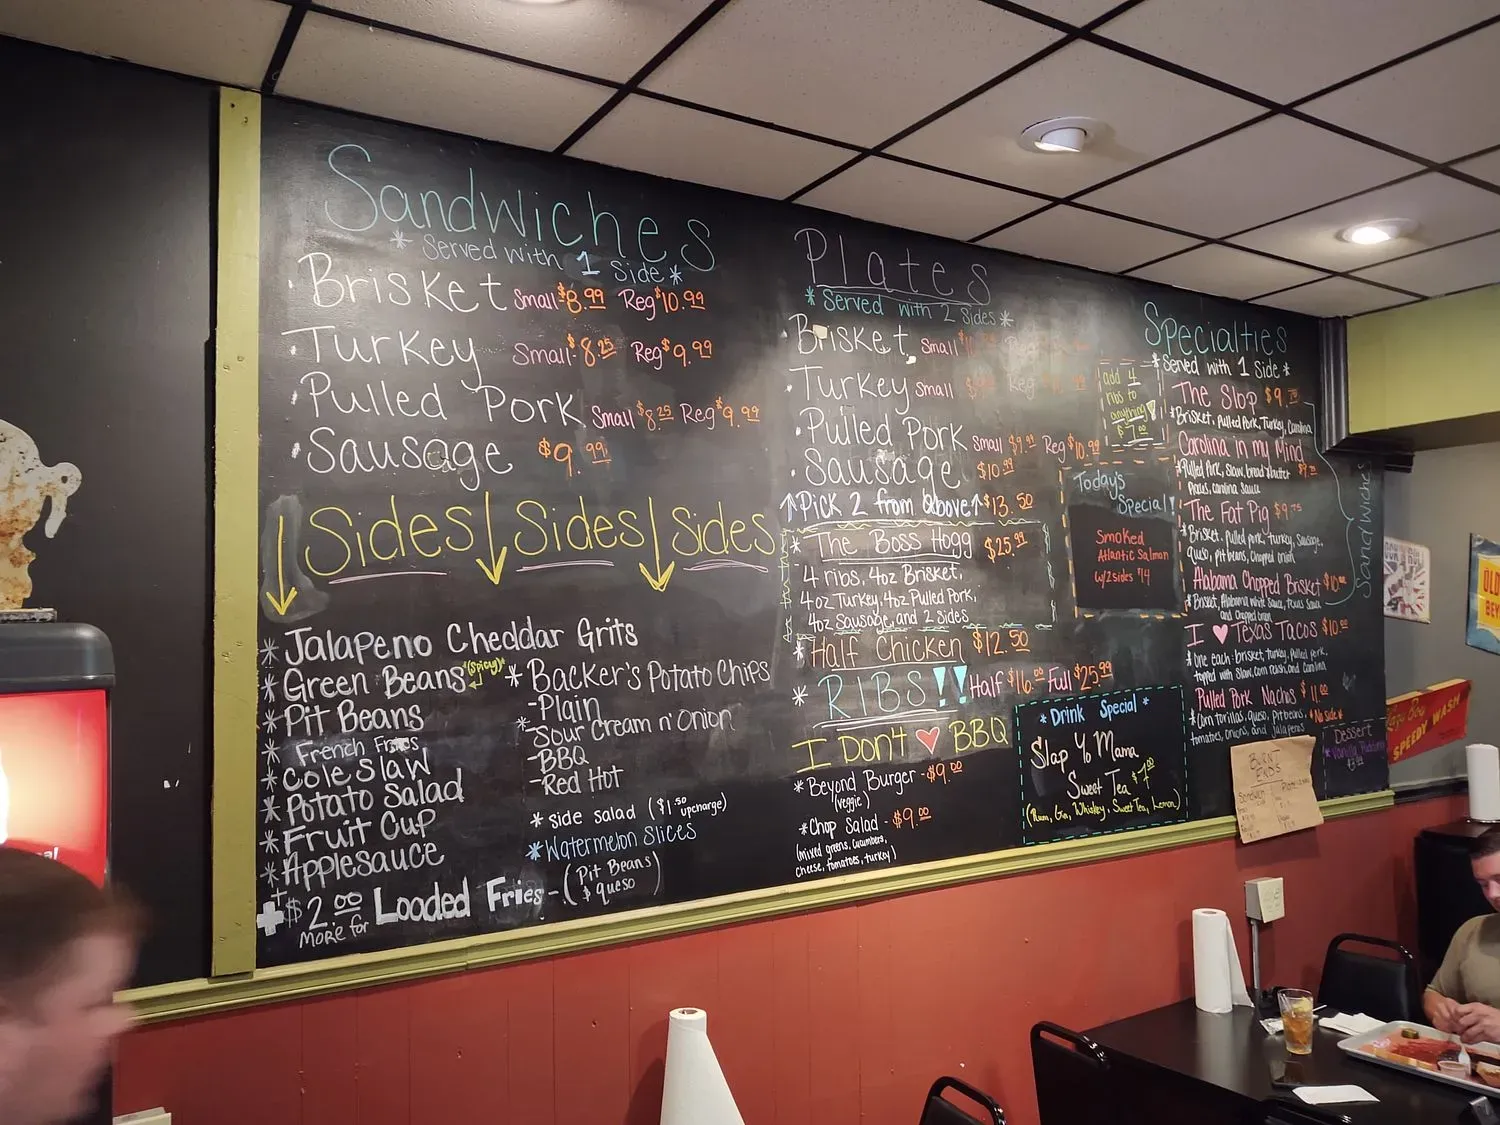 Sandwiches
* Served with 1 Side *
· Brisket Small $8.99 Reg $10.99
· Turkey Small $8.25 Reg $9.99
· Pulled Pork Small $8.25 Reg $9.99
· Sausage $9.99
Sides Sides Sides
* Jalapeno Cheddar Grits
* Green Beans (spicy)
* Pit Beans
* French Fries
* Coleslaw
* Potato Salad
* Fruit Cup
* Applesauce
* Backer's Potato Chips
- Plain
- Sour Cream n' Onion
- BBQ
- Red Hot
* side salad ($1.50 upcharge)
* Watermelon Slices
+ $2.00 More for Loaded Fries - (Pit Beans
$ queso)
Plates
* Served with 2 Sides *
· Brisket Small
· Turkey Small
· Pulled Pork Small $9.99 Reg $10.99
· Sausage $10.99
↑Pick 2 from above↑ $13.50
* The Boss Hogg $25.99
4 ribs, 4oz Brisket,
4oz Turkey, 4oz Pulled Pork,
4oz Sausage, and 2 sides
* Half Chicken $12.50
* RIBS!! Half $16.00 Full $25.99
I Don't ♥ BBQ
* Beyond Burger - $9.00
(veggie)
* Chop Salad - $9.00
(mixed greens, cucumbers,
cheese, tomatoes, turkey)
add 4
ribs to
anything!
Today's
Special!
Smoked
Atlantic Salmon
w/2 sides $14
* Drink Special *
Slap Yo Mama
Sweet Tea
(Rum, Gin, Whiskey, Sweet Tea, Lemon)
Specialties
* Served with 1 Side *
The Slop
* Brisket, Pulled Pork, Turkey, Carolina
Carolina in my Mind
* Pulled Pork, Slaw, bread & butter
Pickles, carolina sauce
The Fat Pig $9.75
* Brisket, pulled pork, turkey, Sausage,
queso, pit beans, chopped onion
Alabama Chopped Brisket
* Brisket, Alabama white sauce, texas sauce
and chopped onion
Sandwiches
I ♥ Texas Tacos
* one each: brisket, turkey, pulled pork,
topped with Slaw, corn relish, and Carolina
Pulled Pork Nachos $11.00
* Corn tortillas, queso, pit beans, * No side *
tomatoes, onions, and jalapenos
Dessert
* Vanilla Pudding
BURNT
ENDS
Sandwich
SPEEDY WASH
OLD